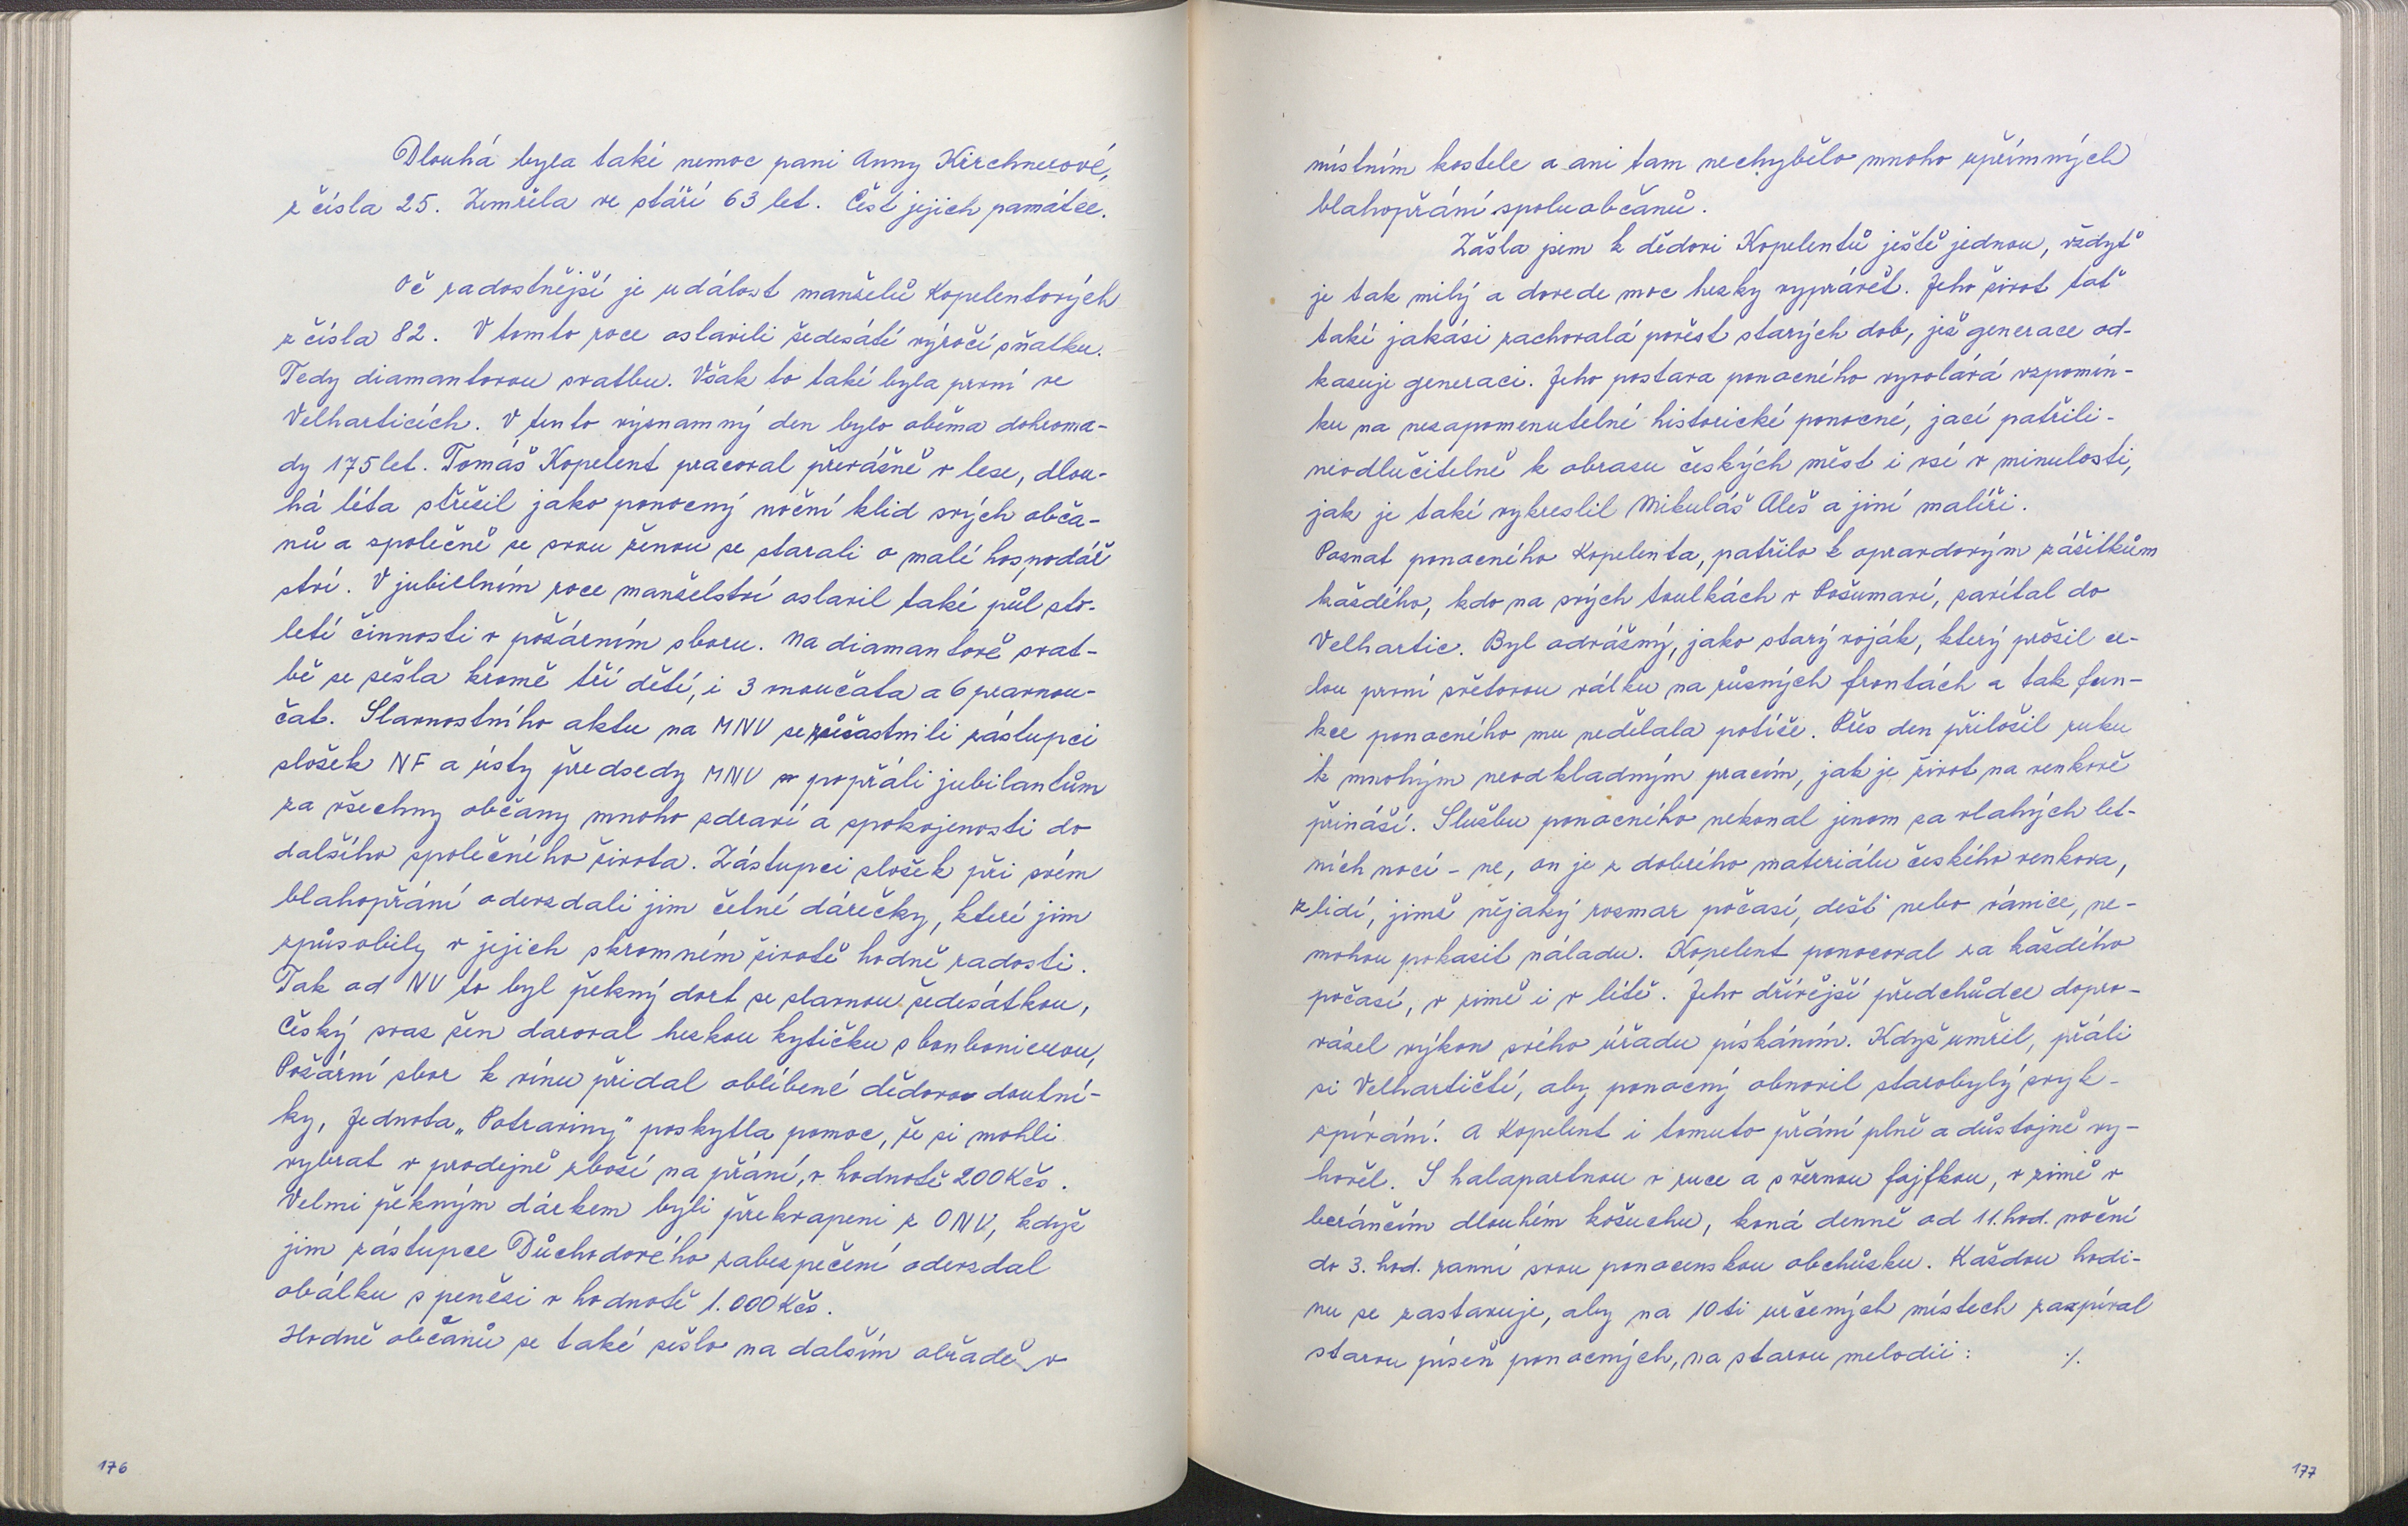 Dlouhá byla také nemoc pani Anny Kirchnerové,
z čísla 25. Zemřela ve stáří 63 let. Čest jejich památce.
Oč radostnější je událost manželů Kopelentových
z čísla 82. V tomto roce oslavili šedesáté výročí sňatku.
Tedy diamantovou svatbu. Však to také byla první ve
Velharticích. V tento významný den bylo oběma dohroma-
dy 175 let. Tomáš Kopelent pracoval převážně v lese, dlou-
há léta střežil jako ponocný noční klid svých obča-
nů a společně se svou ženou se starali o malé hospodář
ství. V jubilelním roce manželství oslavil také půl sto-
letí činnosti v požárním sboru. Na diamantové svat-
bě se sešla kromě tří dětí, i 3 vnoučata a 6 pravnou-
čat. Slavnostního aktu na MNV se zúčastnili zástupci
složek NF a ústy předsedy MNV popřáli jubilantům
za všechny občany mnoho zdraví a spokojenosti do
dalšího společného života. Zástupci složek při svém
blahopřání odevzdali jim četné dárečky, které jim
způsobily v jejich skromném životě hodně radosti.
Tak od NV to byl pěkný dort se slavnou šedesátkou,
Český svaz žen daroval hezkou kytičku s bonbonierou,
Požární sbor k vínu přidal oblíbené dědovo doutní-
ky, Jednota „Potraviny" poskytla pomoc, že si mohli
vybrat v prodejně zboží na přání, v hodnotě 200 Kčs.
Velmi pěkným dárkem byli překvapeni z ONV, když
jim zástupce Důchodového zabezpečení odevzdal
obálku s penězi v hodnotě 1.000 Kčs.
Hodně občanů se také sešlo na dalším obřadě v
176
místním kostele a ani tam nechybělo mnoho upřímných
blahopřání spoluobčanů.
Zašla jsem k dědovi Kopelentů ještě jednou, vždyť
je tak milý a dovede moc hezky vyprávět. Jeho život toť
také jakási zachovalá pověst starých dob, jež generace od-
kazuje generaci. Jeho postava ponocného vyvolává vzpomín-
ku na nezapomenutelné historické ponocné, jací patřili-
neodlučitelně k obrazu českých měst i vsí v minulosti,
jak je také vykreslil Mikuláš Aleš a jiní malíři.
Poznat ponocného Kopelenta, patřilo k opravdovým zážitkům
každého, kdo na svých toulkách v Pošumaví, zavítal do
Velhartic. Byl odvážný, jako starý voják, který prožil ce-
lou první světovou válku na různých frontách a tak fun-
kce ponocného mu nedělala potíže. Přes den přiložil ruku
k mnohým neodkladným pracím, jak je život na venkově
přináší. Službu ponocného nekonal jenom za vlahých let-
ních nocí - ne, on je z dobrého materiálu českého venkova,
z lidí, jimž nějaký rozmar počasí, déšť nebo vánice, ne-
mohou pokazit náladu. Kopelent ponocoval za každého
počasí, v zimě i v létě. Jeho dřívější předchůdce dopro-
vázel výkon svého úřadu pískáním. Když umřel, přáli
si Velhartičtí, aby ponocný obnovil starobylý zvyk -
zpívání! A Kopelent i tomuto přání plně a důstojně vy-
hověl. S halapartnou v ruce a s věrnou fajfkou, v zimě v
beránčím dlouhém kožuchu, koná denně od 11. hod. noční
do 3. hod. ranní svou ponocenskou obchůzku. Každou hodi-
nu se zastavuje, aby na 10ti určených místech zazpíval
starou píseň ponocných, na starou melodii: ./.
177